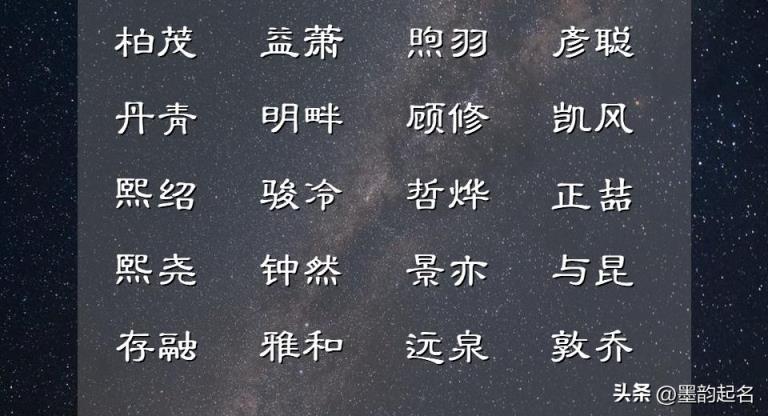 柏茂 益萧 煦羽 彦聪
丹青 明畔 顾修 凯风
熙绍 骏冷 哲烨 正喆
熙尧 钟然 景亦 与昆
存融 雅和 远泉 敦乔
头条 @墨韵起名